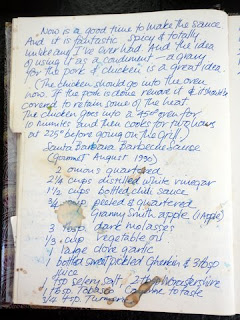 Now is a good time to make the sauce
And it is fantastic spicy & totally
unlike any I've ever had. And the idea
of using it as a condiment - a gravy
for the pork & chicken is a great idea.
(The chicken should go into the oven
now. If the pork is done remove it &
cover it to retain some of the heat.
The chicken goes into a 450° oven for
10 minutes and then cooks for two hours
at 225° before going on the grill.)
Santa Barbara Barbecue Sauce
(Gourmet August 1990)
2 onions quartered
2 1/4 cups distilled white vinegar
1 1/2 cups bottled chili sauce
3/4 peeled & quartered
Granny Smith apple (1 Apple)
3 tbsp dark molasses
1/3 cup vegetable oil
1 large clove garlic
1 bottled sweet pickled gherkin & 3 tbsp
juice
1 tsp celery salt 2 tbsp Worcestershire
1 tbsp Tabasco Cayenne to taste
3/4 tsp Turmeric